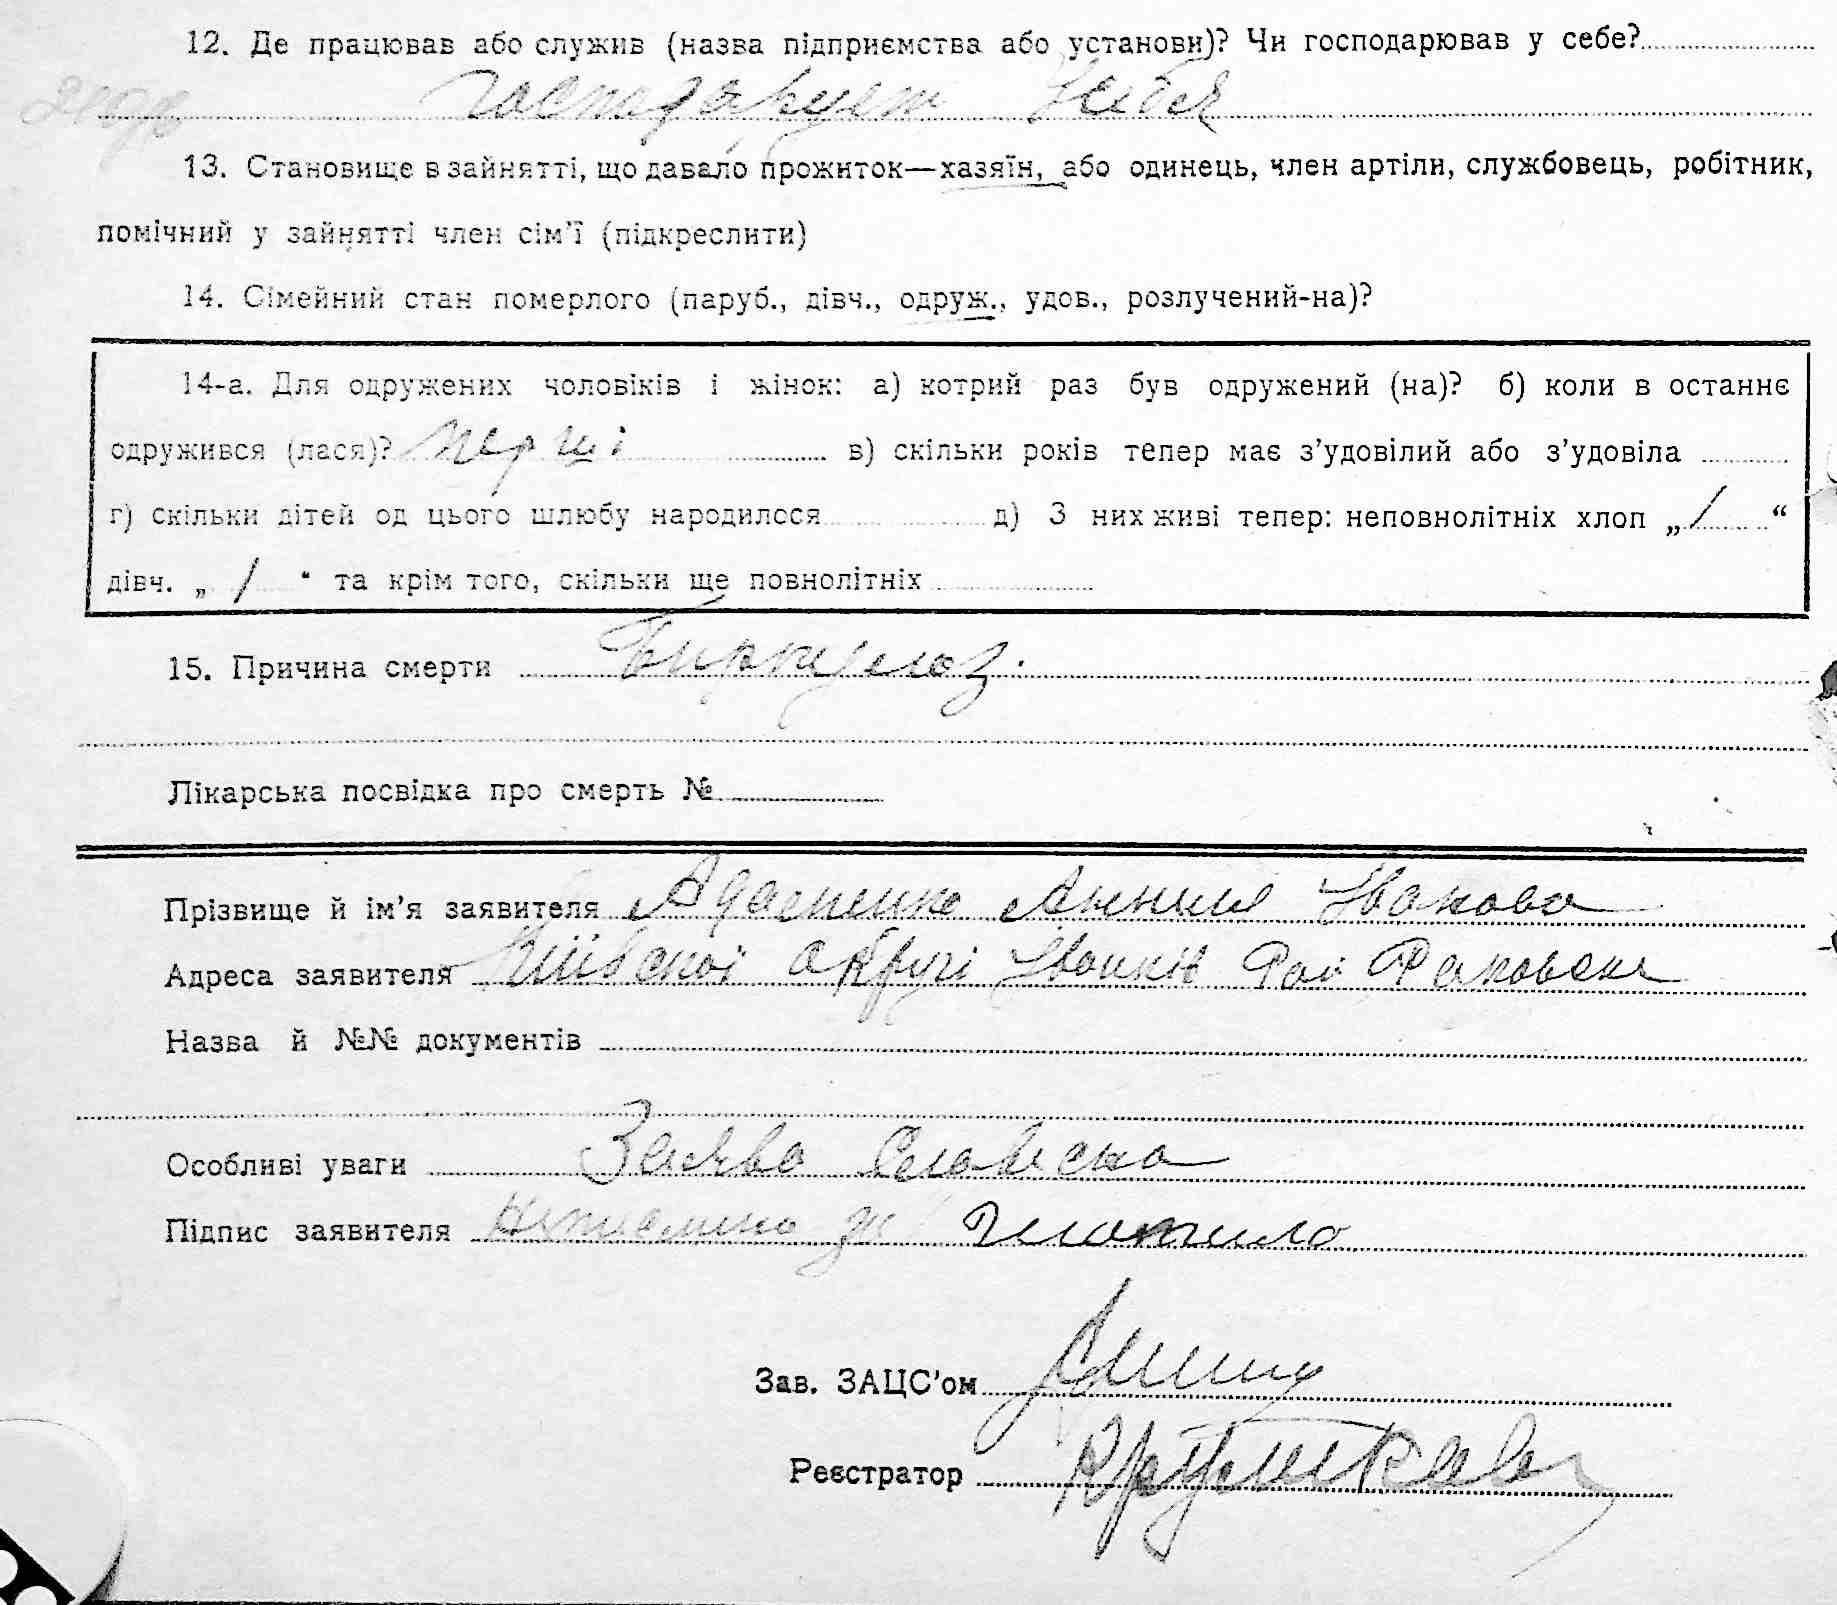 12. Де працював або служив (назва підприємства або установи)? Чи господарював у себе?
господарует У себя
13. Становище в зайнятті, що давало прожиток—хазяїн, або одинець, член артіли, службовець, робітник,
помічний у зайнятті член сім'ї (підкреслити)
14. Сімейний стан померлого (паруб., дівч., одруж., удов., розлучений-на)?
14-а. Для одружених чоловіків і жінок: а) котрий раз був одружений (на)? б) коли в останнє
одружився (лася)? перші в) скільки років тепер має з'удовілий або з'удовіла
г) скільки дітей од цього шлюбу народилося д) З них живі тепер: неповнолітніх хлоп „ 1 “
дівч. „ 1 “ та крім того, скільки ще повнолітніх
15. Причина смерти
Лікарська посвідка про смерть №
Прізвище й ім'я заявителя Адаменко Іванова
Адреса заявителя Київської округи Іванків Рай
Назва й №№ документів
Особливі уваги Заява словесна
Підпис заявителя
Зав. ЗАЦС'ом
Реєстратор